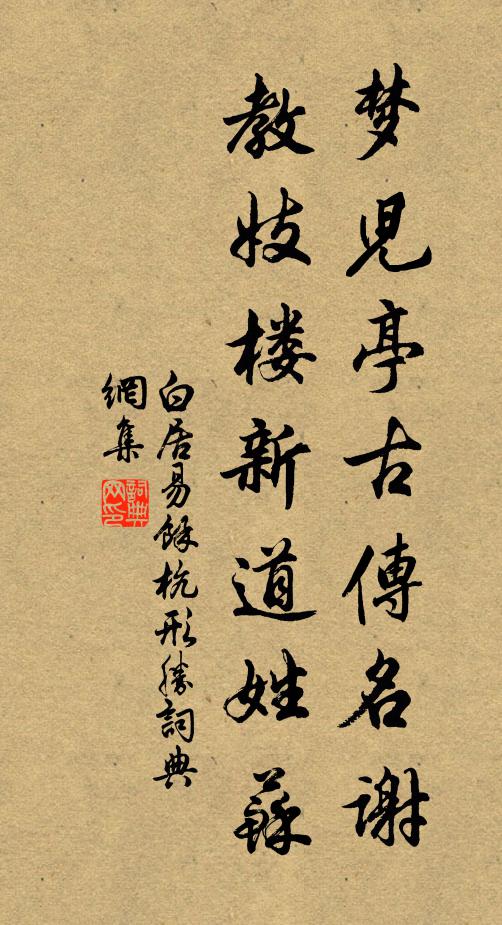 梦児亭古傳名谢
教妓楼新道姓蘇
白居易餘杭形勝詞典
網集
詞典網印